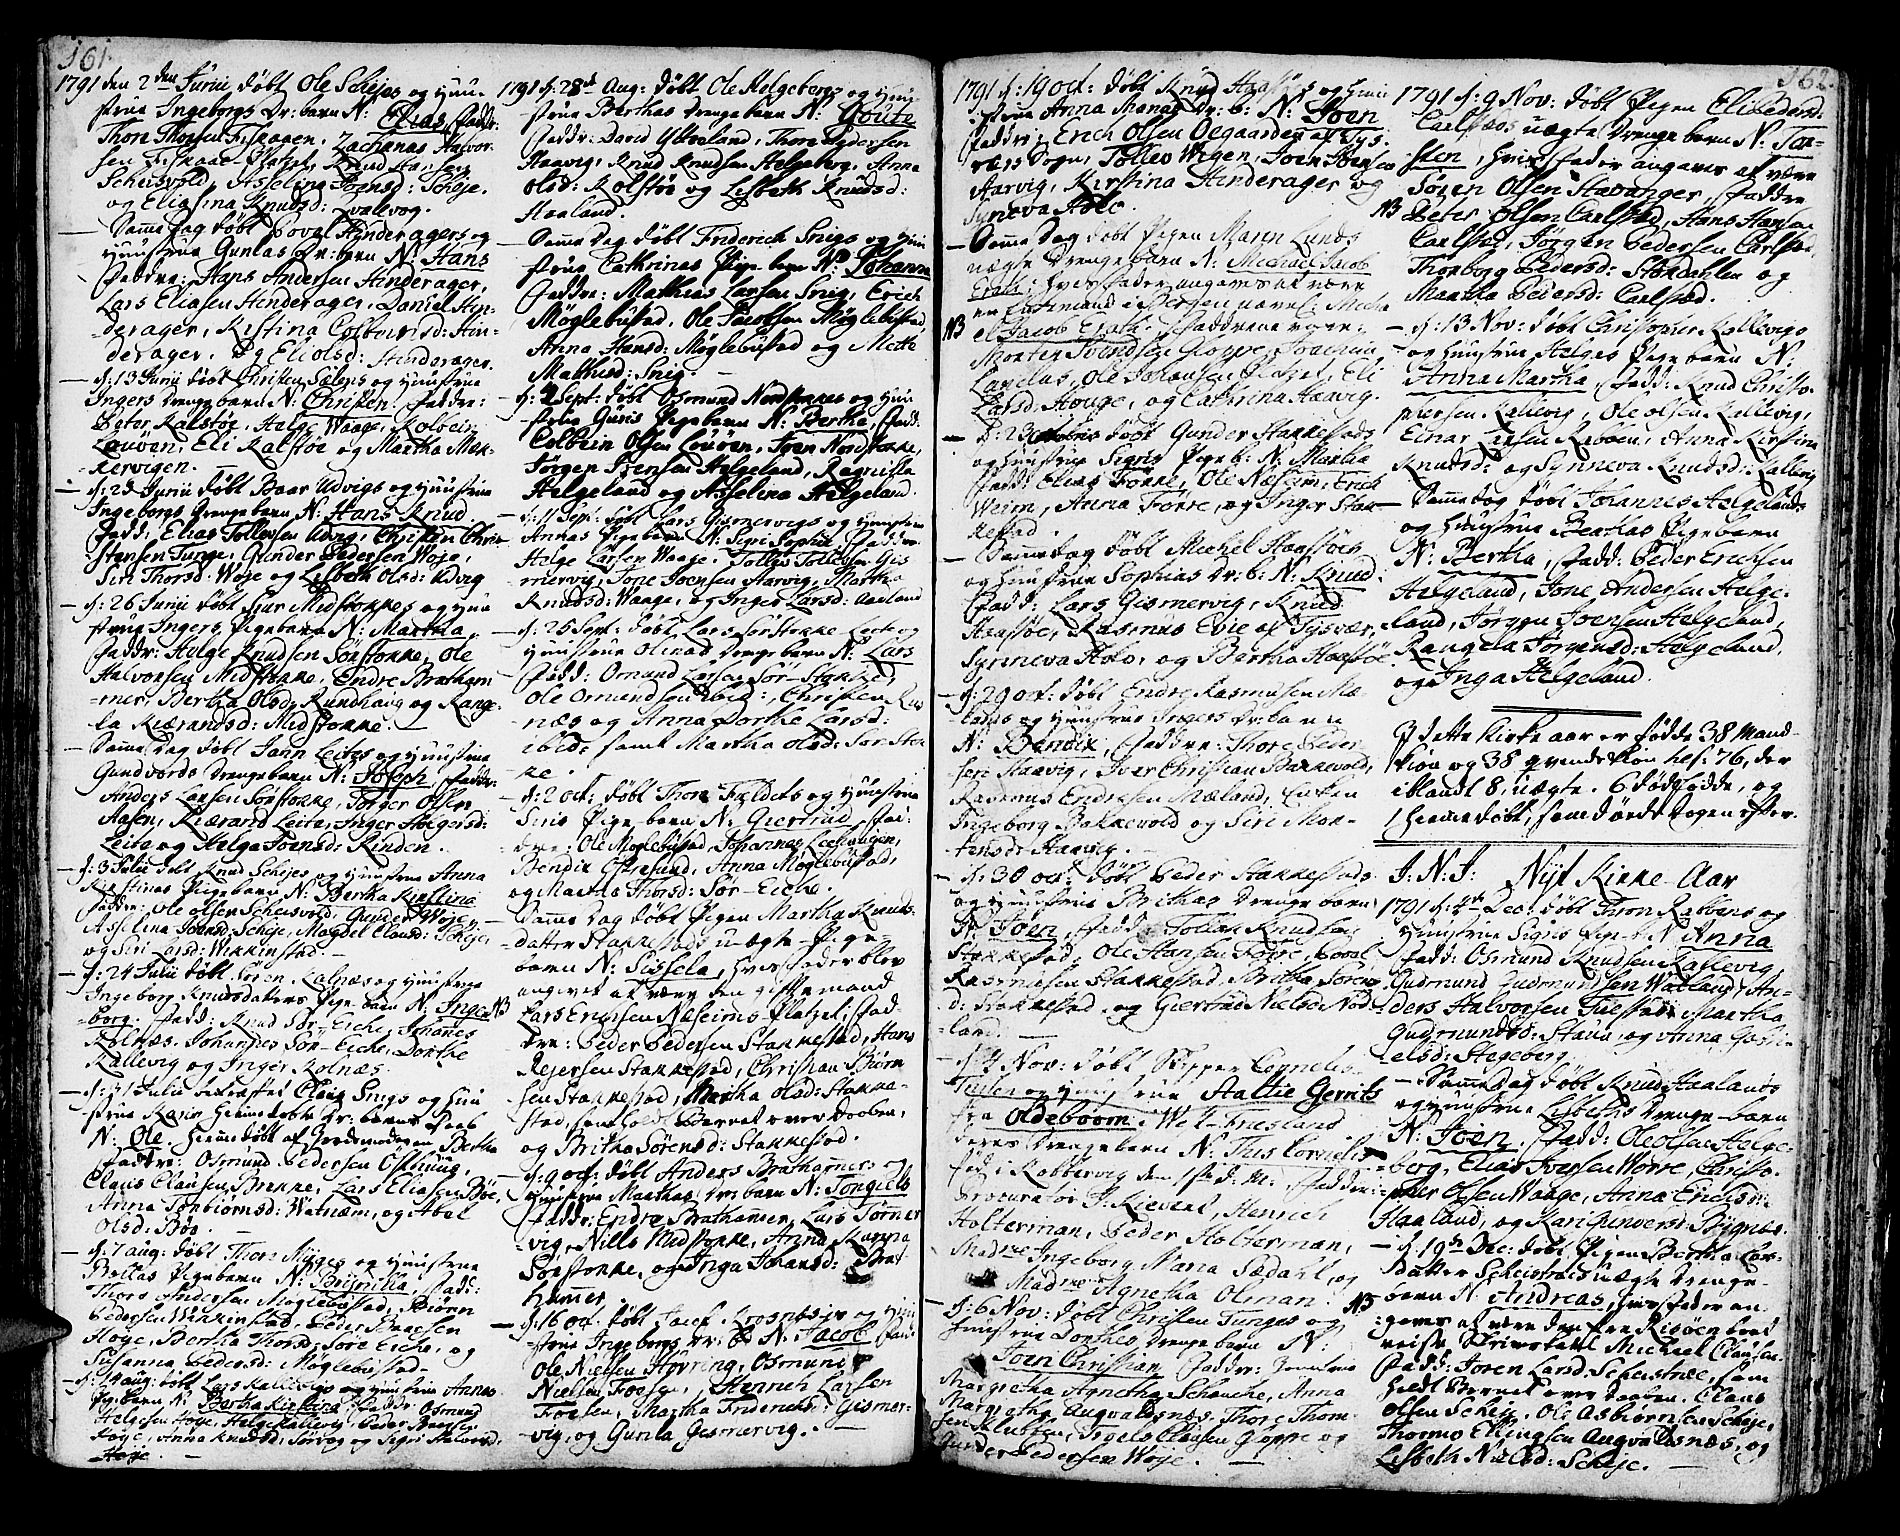 161.
1791 den 2den Junii døbt Ole Schejes og Huu-
strue Ingeborgs Dr: barn N: Elias, Faddr:
Thore Thorsen Fiskaaen, Zacharias Halvor-
sen Fiskaae Platzet, Knud
Scheisvold, Asselina Joensd: Scheje.
og Eliasina Knudsd: Qvalevog.
— Samme Dag døbt Povel Hinderagers og
Huustrue Gunlas Dr: barn N: Hans
Faddr: Hans Andersen Hinderager,
Lars Eliasen Hinderager, Daniel Hin-
derager, Kistina Colbeinsd: Hin-
derager, og Eli Olsd: Hinderager.
— d: 13 Junii døbt Christen Sølens og Huustrue
Ingers Drengebarn N: Christen. Faddre:
Peter Kalstøe, Helge Waage, Kolbein
Louøen, Eli Kalstøe og Martha Mæk-
kervigen.
— d: 23 Junii døbt Baar Udvigs og Huustrue
Ingeborgs Drengebarn N: Hans Knud
Fadd: Elias Tollefsen Advig, Christen Chri-
stensen Tunge, Gunder Pedersen Woje,
Siri Thorsd: Woje og Lisbeth Olsd: Udvig
— d: 26 Junii døbt Siur Midstokkes og Huu
strue Ingers Pigebarn N: Martha,
Faddr: Helge Knudsen Sørstokke, Ole
Halvorsen Midstokke, Endre Bratham-
mer, Bertha Olsd. Rundhaug og Rang-
la Kiærandsd: Midstokke. —
— Samme Dag døbt Jann Leites og Huustrue
Gundvords Drengebarn N: Joseph, Faddr:
Anders Larsen Sørstokke, Torger Olsen
Aasen, Kiærand Leite, Inger Holgersd:
Leite og Helga Joensd: Kinden.
— d: 3 Julii døbt Knud Schejes og Huustrue Anna
Kirstinas Pigebarn N: Bertha Kirstina
Faddr: Ole Olsen Scheisvold, Gunder Woje,
Asselina Joensd: Scheje, Magdel Clausd: Scheje,
og Siri Larsd: Wikkinstad. —
— d: 24 Julii døbt Søren Kalnæs og Huustrue
Ingeborg Knudsdatters Pige barn N: Inge-
borg. Fadd: Knud Sør-Eiche, Johannes
Kolnæs. Johannes Sør-Eiche, Dorthe
Kallevig og Inger Kolnæs.
— d: 31 Julii bekræftet Claus Snigs og Huu
strue Karis hiemmedøbte Dr: barns Daab
N: Ole. Hiemmedøbt af Jordemoderen Bertha
Faddr: Osmund Pedersen Østhuus,
Claus Clausen Brekke, Lars Eliasen Bøe,
Anna Torbiørnsd: Watnæm, og Abel
Olsd: Bøe.
— d: 7 aug: døbt Thore Nyges og Huustrue
Bollas Pigebarn N: Brismilla, Fadd:
Thore Andersen Møglebustad, Biørn
Pedersen Wikkinstad, Peder Baarsen
Hoje, Bertha Thorsd: Søre Eiche, og
Susanna Pedersd: Møglebustad —
— d: 14 aug: døbt Lars Kallevigs og Huustrue Annas
Pigebarn N: Bertha Kirstina, Faddr: Osmund
Helgesen Hoje, Helge Kallevig, Peder Baarsen
Hoje, Anna Knudsd: Sørvog og Sigri Halvord:
Hoje. —
1791 d: 28d Aug: døbt Ole Helgebergs og Huu-
strue Berthas Drengebarn N: Goute
Faddr: David Ytteland, Thore Pedersen
Haavig, Knud Knudsen Helgeberg, Anna
Olsd: Kolstøe og Lisbeth Knudsd:
Haaland.
— Samme Dag døbt Friderich Snigs og Huu
strue Cathrinas Pige-barn N: Johanna
Faddr: Mathias Larsen Snig, Erich
Møglebustad, Ole Jacobsen Møglebustad,
Anna Hansd: Møglebustad og Mette
Mathisd: Snig. —
d: 2 Sept: døbt Osmund Nordstokkes og Huu
strue Guris Pigebarn N: Bertha, Fadd:
Colbein Olsen Louøen, Iver Nordstokke,
Jørgen Joensen Helgeland, Ragnilla
Helgeland og Asselina Helgeland.
— d: 11 Sept: døbt Lars Gismervigs og Huustrue
Annas Pigebarn N: Siri Sophia Faddre
Helge Larsen Waage, Tollef Tollefsen Gis
mervig, Jone Joensen Aarvig, Martha
Knudsd: Waage, og Inger Larsd: Aaeland
— d: 25 Sept: døbt Lars Sør Stokke Leite og
Huustrue Olenas Drengebarn N: Lars
Fadd: Ormund Larsen Sør-Stokke,
Ole Ormundsen ibid:, Christen Kol
næs og Anna Dorthe Larsd:
ibid, samt Martha Olsd: Sør Stok
ke.
— d: 2 oct: døbt Thore Fældets og Huustrue
Siris Pige-barn N: Giertrud, Fad-
dre: Ole Møglebustad, Johannes Leehaugen,
Bendix Østresund, Anna Møglebustad,
og Martha Thorsd: Sør-Eiche.
— Samme Dag døbt Pigen Martha Knuds-
datter Stakkestads uægte Pige-
barn N: Sissela, hvis Fader blev
NB angivet at være den gifte mand
Lars Erichsen Næseims-Platzet; Fad-
dre: Peder Pedersen Stakkestad, Hans
Rejersen Stakkestad, Christian Biørn-
sen Stakkestad, Martha Olsd: Stakke-
stad, som holdt Barnet over Daaben,
og Britha Sørensd: Stakkestad.
— d: 9 oct: døbt Anders Brathamers og
Huustrue Marthas Dr: barn N: Tongiels
Faddr: Endre Brathamer, Lars Torner
vig, Niels Midstokke, Anna Karina
Sørstokke, og Inga Johansd: Brat
hammer.
— d: 16 oct: døbt Jacob Krosnbergs og Huu
strue Ingeborgs Dr: b: N: Jacob, Fadd:
Ole Nielsen Høvring, Osmund
Nielsen Foesen, Henrich Larsen
Foesen, Martha Friderichsd: Gismer-
vig, og Gunla Gismervig. —
162.
1791 d: 19 oct: døbt Knud Haa og Huu
strue Anna Monas Dr: b: N: Joen
Faddr: Erich Olsen Øegaarden af Tys-
vers Sogn, Tollev Wigen, Joen Hansen
Aarvig, Kirstina Hinderager og
Syneva Hole.
— Samme Dag døbt Pigen Maren Lunds
uægte Drengebarn N: Michael Jacob
Erath: hvis Fader angaves at være
NB en Kiøbmand i Bergen navnl: Micha
el Jacob Erath. Faddrene vare:
Morten Svendsen Gloppe, Joachim
Lavelas, Ole Johansen Platzet, Eli
Larsd: Houge, og Cathrina Haavig.
— d: 23 Octobris døbt Gunder Stakkestads
og Huustrue Sigris Pigeb: N: Martha
Fadd: Elias Førre, Ole Næseim, Erich
Weim, Anna Førre, og Inger Stak
kestad.
— Samme dag døbt Michel Haastøes
og Huustrue Sophias Dr: b: N: Knud.
Fadd: Lars Gismervig, Knud
Haastøe, Rasmus Evie af Tysvær,
Synneva Hole, og Bertha Haastøe
— d: 29 oct: døbt Endre Rasmusen Mæ-
lands og Huustrue Ingers Dr: barn
N: Bendix, Faddre: Thore Peder
sen Haavig, Iver Christian Bakkevold,
Rasmus Endresen Mæland, Enken
Ingeborg Bakkevold og Siri Mor-
tensd: Haavig.
— d: 30 oct: døbt Peder Stakkestads
og Huustrue Brithas Drenge barn
N: Joen, Faddr: Tollak Knudsen
Stakkestad, Ole Hansen Førre, Povel
Rasmusen Stakkestad, Britha Sørens
d: Stakkestad, og Giertrud Nielsd: Nord-
land.
— d: 4 Nov: døbt Skipper Cornelis
Tuilen og Huustrue Aaltie Gerrits
fra Oldeboom i West-Friesland
deres Drengebarn N: Thus Cornelis
født i Kobbervig den 1ste d: M:, Faddr:
Procurator P. Kievert, Henrich
Holterman, Peder Holterman,
Madme Ingeborg Maria Sædahl, og
Madme Agnetha Otman.
— d: 6 Nov: døbt Christen Tunges og
Huustrue Dorthes Drengebarn N:
Joen Christian, Faddr: Jomfrue
Margretha Agnetha Schanche, Anna
Margretha Augvaldsnæs, Thore Thom-
sen Klubben, Engels Clausen Gloppe og
Gunder Pedersen Woje. —
1791 d: 9 Nov: døbt Pigen Eli Pedersd:
Carlstads uægte Drenge barn N: Tor-
sten, hvis Fader angaves at være
Søren Olsen Stavanger, Faddre
NB Peter Olsen Carlstad, Hans Hansen
Carlstad, Jørgen Pedersen Carlstad,
Thorborg Pedersd: Stokdahlen og
Martha Pedersd: Carlstad.
— d: 13 Nov: døbt Christopher Kallevigs
og Huustrue Helges Pige barn N:
Anna Martha, Fadd: Knud Christo-
phersen Kallevig, Ole Olsen Kallevig,
Einar Larsen Røboen, Anna Kirstina
Knudsd: og Synneva Knudsd: Kallevig
— Samme dag døbt Johannes Helgelands
og Huustrue Berthas Pigebarn
N: Bertha, Fadd: Peder Erichsen
Helgeland, Jone Andersen Helge-
land, Jørgen Joensen Helgeland,
Rangela Jørgensd: Helgeland,
og Inga Helgeland.
I dette Kirke aar er fødde 38 Mand-
kiøn og 38 qvindekiøn hel: 76, der
iblandt 8, uægte. 6 dødfødde, og
1 hiemmedøbt, som døde Dagen efter.
J: N: J: Nyt Kirke-Aar
1791 d: 4de Dec: døbt Thore Røbbens og
Huustrue Sigris Pige-b: N: Anna
Fadd: Osmund Knudsen Kallevig,
Gudmund Gudmundsen Watland, An-
ders Halvorsen Tuestad, Martha
Gudmundsd: Stava, og Anna Gabri-
elsd: Stegeberg.
— Samme Dag døbt Knud Haalands
og Huustrue Lisbeths Drenge-barn
N: Joen. Fadd: Ole Olsen Helge-
berg, Elias Iversen Worre, Christo-
pher Olsen Waage, Anna Erichsd:
Haaland, og Kari Gundersd: Bygnes.
— d: 19de Dec: døbt Pigen Bertha Lars-
datter Scheistræes uægte Drenge-
barn N: Andreas, hvis Fader an-
NB gaves at være den fra Risøen bort
reiste Skrædder Michael Clausen.
Fadd: Joren Larsd: Scheistræe, som
holdt Barnet over Daaben. Claus
Olsen Scheje, Ole Asbiørnsen Scheje,
Thormo Ellingsen Augvaldsnæs, og
Lisbeth Nielsd: Scheje. —